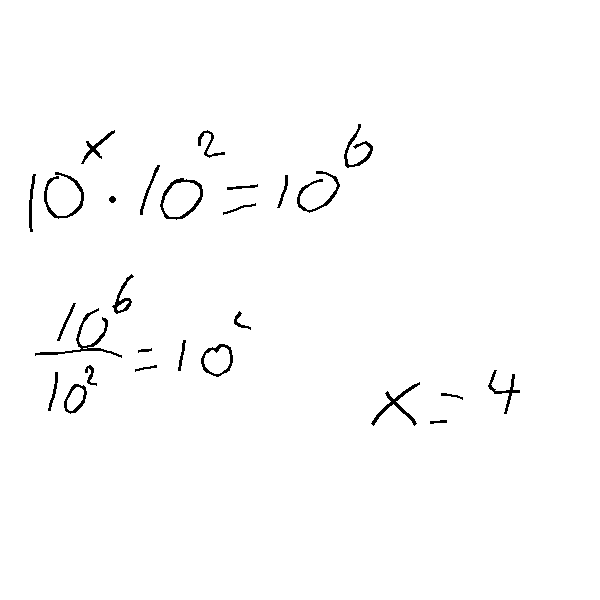 10^x · 10^2 = 10^6
10^6 / 10^2 = 10
x = 4